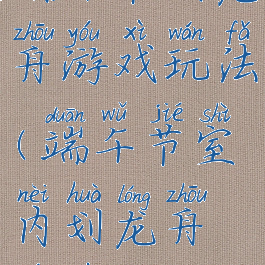 zhōu yóu xì wán fǎ
舟游戏玩法
duān wǔ jié shì
(端午节室
nèi huà lóng zhōu
内划龙舟